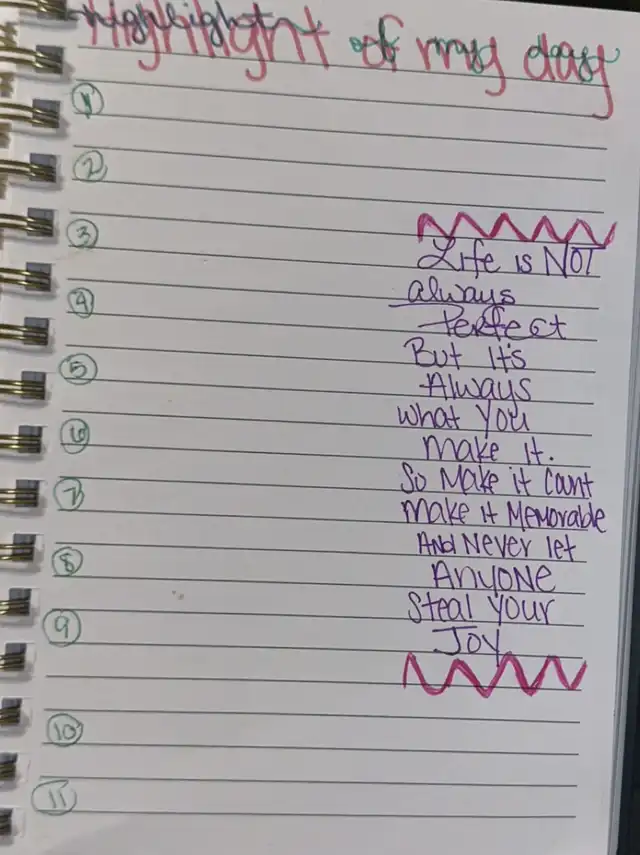 Highlight of my day
1
2
3
Life is NOT
always
4
Perfect
But It's
5
Always
What You
6
make it.
So Make it Count
7
make it Memorable
And Never let
8
Anyone
Steal Your
9
Joy
10
11